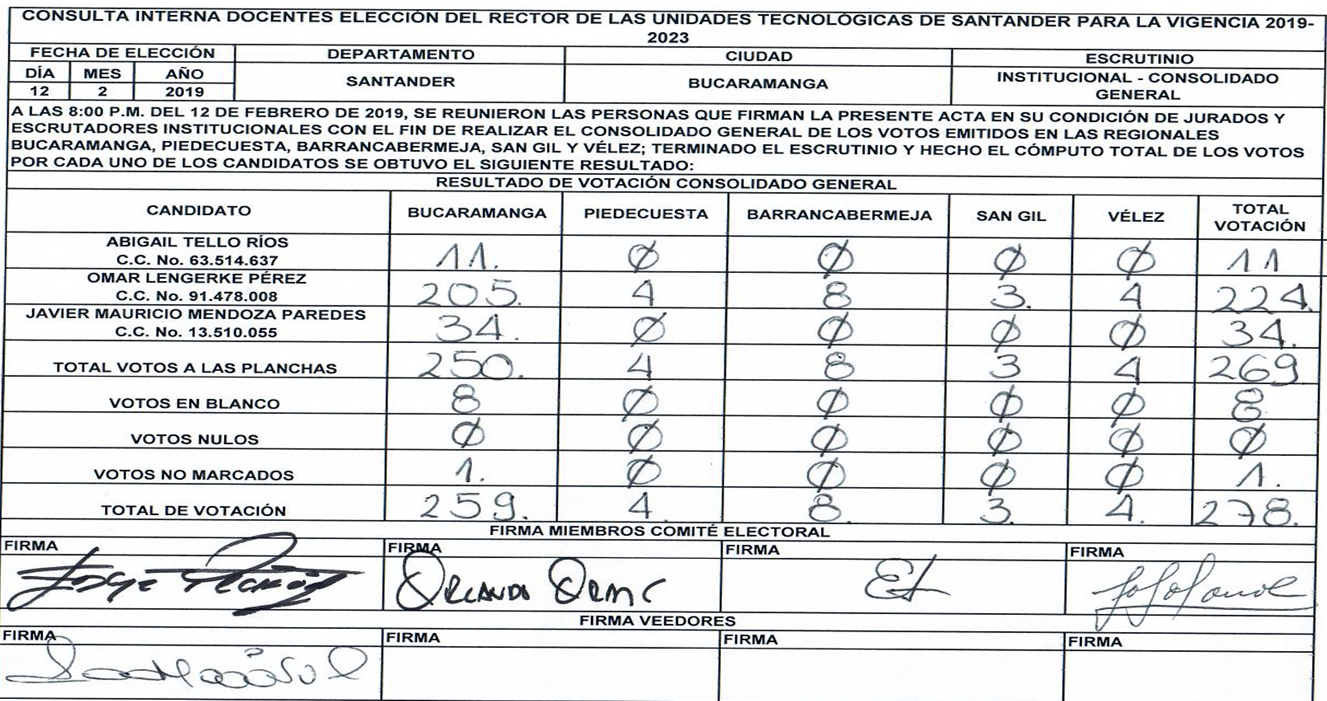 CONSULTA INTERNA DOCENTES ELECCIÓN DEL RECTOR DE LAS UNIDADES TECNOLÓGICAS DE SANTANDER PARA LA VIGENCIA 2019-
2023
FECHA DE ELECCIÓN DEPARTAMENTO CIUDAD ESCRUTINIO
DÍA MES AÑO SANTANDER BUCARAMANGA INSTITUCIONAL - CONSOLIDADO
12 2 2019 GENERAL
A LAS 8:00 P.M. DEL 12 DE FEBRERO DE 2019, SE REUNIERON LAS PERSONAS QUE FIRMAN LA PRESENTE ACTA EN SU CONDICIÓN DE JURADOS Y
ESCRUTADORES INSTITUCIONALES CON EL FIN DE REALIZAR EL CONSOLIDADO GENERAL DE LOS VOTOS EMITIDOS EN LAS REGIONALES
BUCARAMANGA, PIEDECUESTA, BARRANCABERMEJA, SAN GIL Y VÉLEZ; TERMINADO EL ESCRUTINIO Y HECHO EL CÓMPUTO TOTAL DE LOS VOTOS
POR CADA UNO DE LOS CANDIDATOS SE OBTUVO EL SIGUIENTE RESULTADO:
RESULTADO DE VOTACIÓN CONSOLIDADO GENERAL
CANDIDATO BUCARAMANGA PIEDECUESTA BARRANCABERMEJA SAN GIL VÉLEZ TOTAL
VOTACIÓN
ABIGAIL TELLO RÍOS
C.C. No. 63.514.637 11. Ø Ø Ø Ø 11
OMAR LENGERKE PÉREZ
C.C. No. 91.478.008 205. 4 8 3. 4 224.
JAVIER MAURICIO MENDOZA PAREDES
C.C. No. 13.510.055 34. Ø Ø Ø Ø 34.
TOTAL VOTOS A LAS PLANCHAS 250. 4 8 3 4 269
VOTOS EN BLANCO 8 Ø Ø Ø Ø 8
VOTOS NULOS Ø Ø Ø Ø Ø Ø
VOTOS NO MARCADOS 1. Ø Ø Ø Ø 1.
TOTAL DE VOTACIÓN 259. 4 8. 3. 4. 278.
FIRMA MIEMBROS COMITÉ ELECTORAL
FIRMA FIRMA FIRMA FIRMA
FIRMA VEEDORES
FIRMA FIRMA FIRMA FIRMA